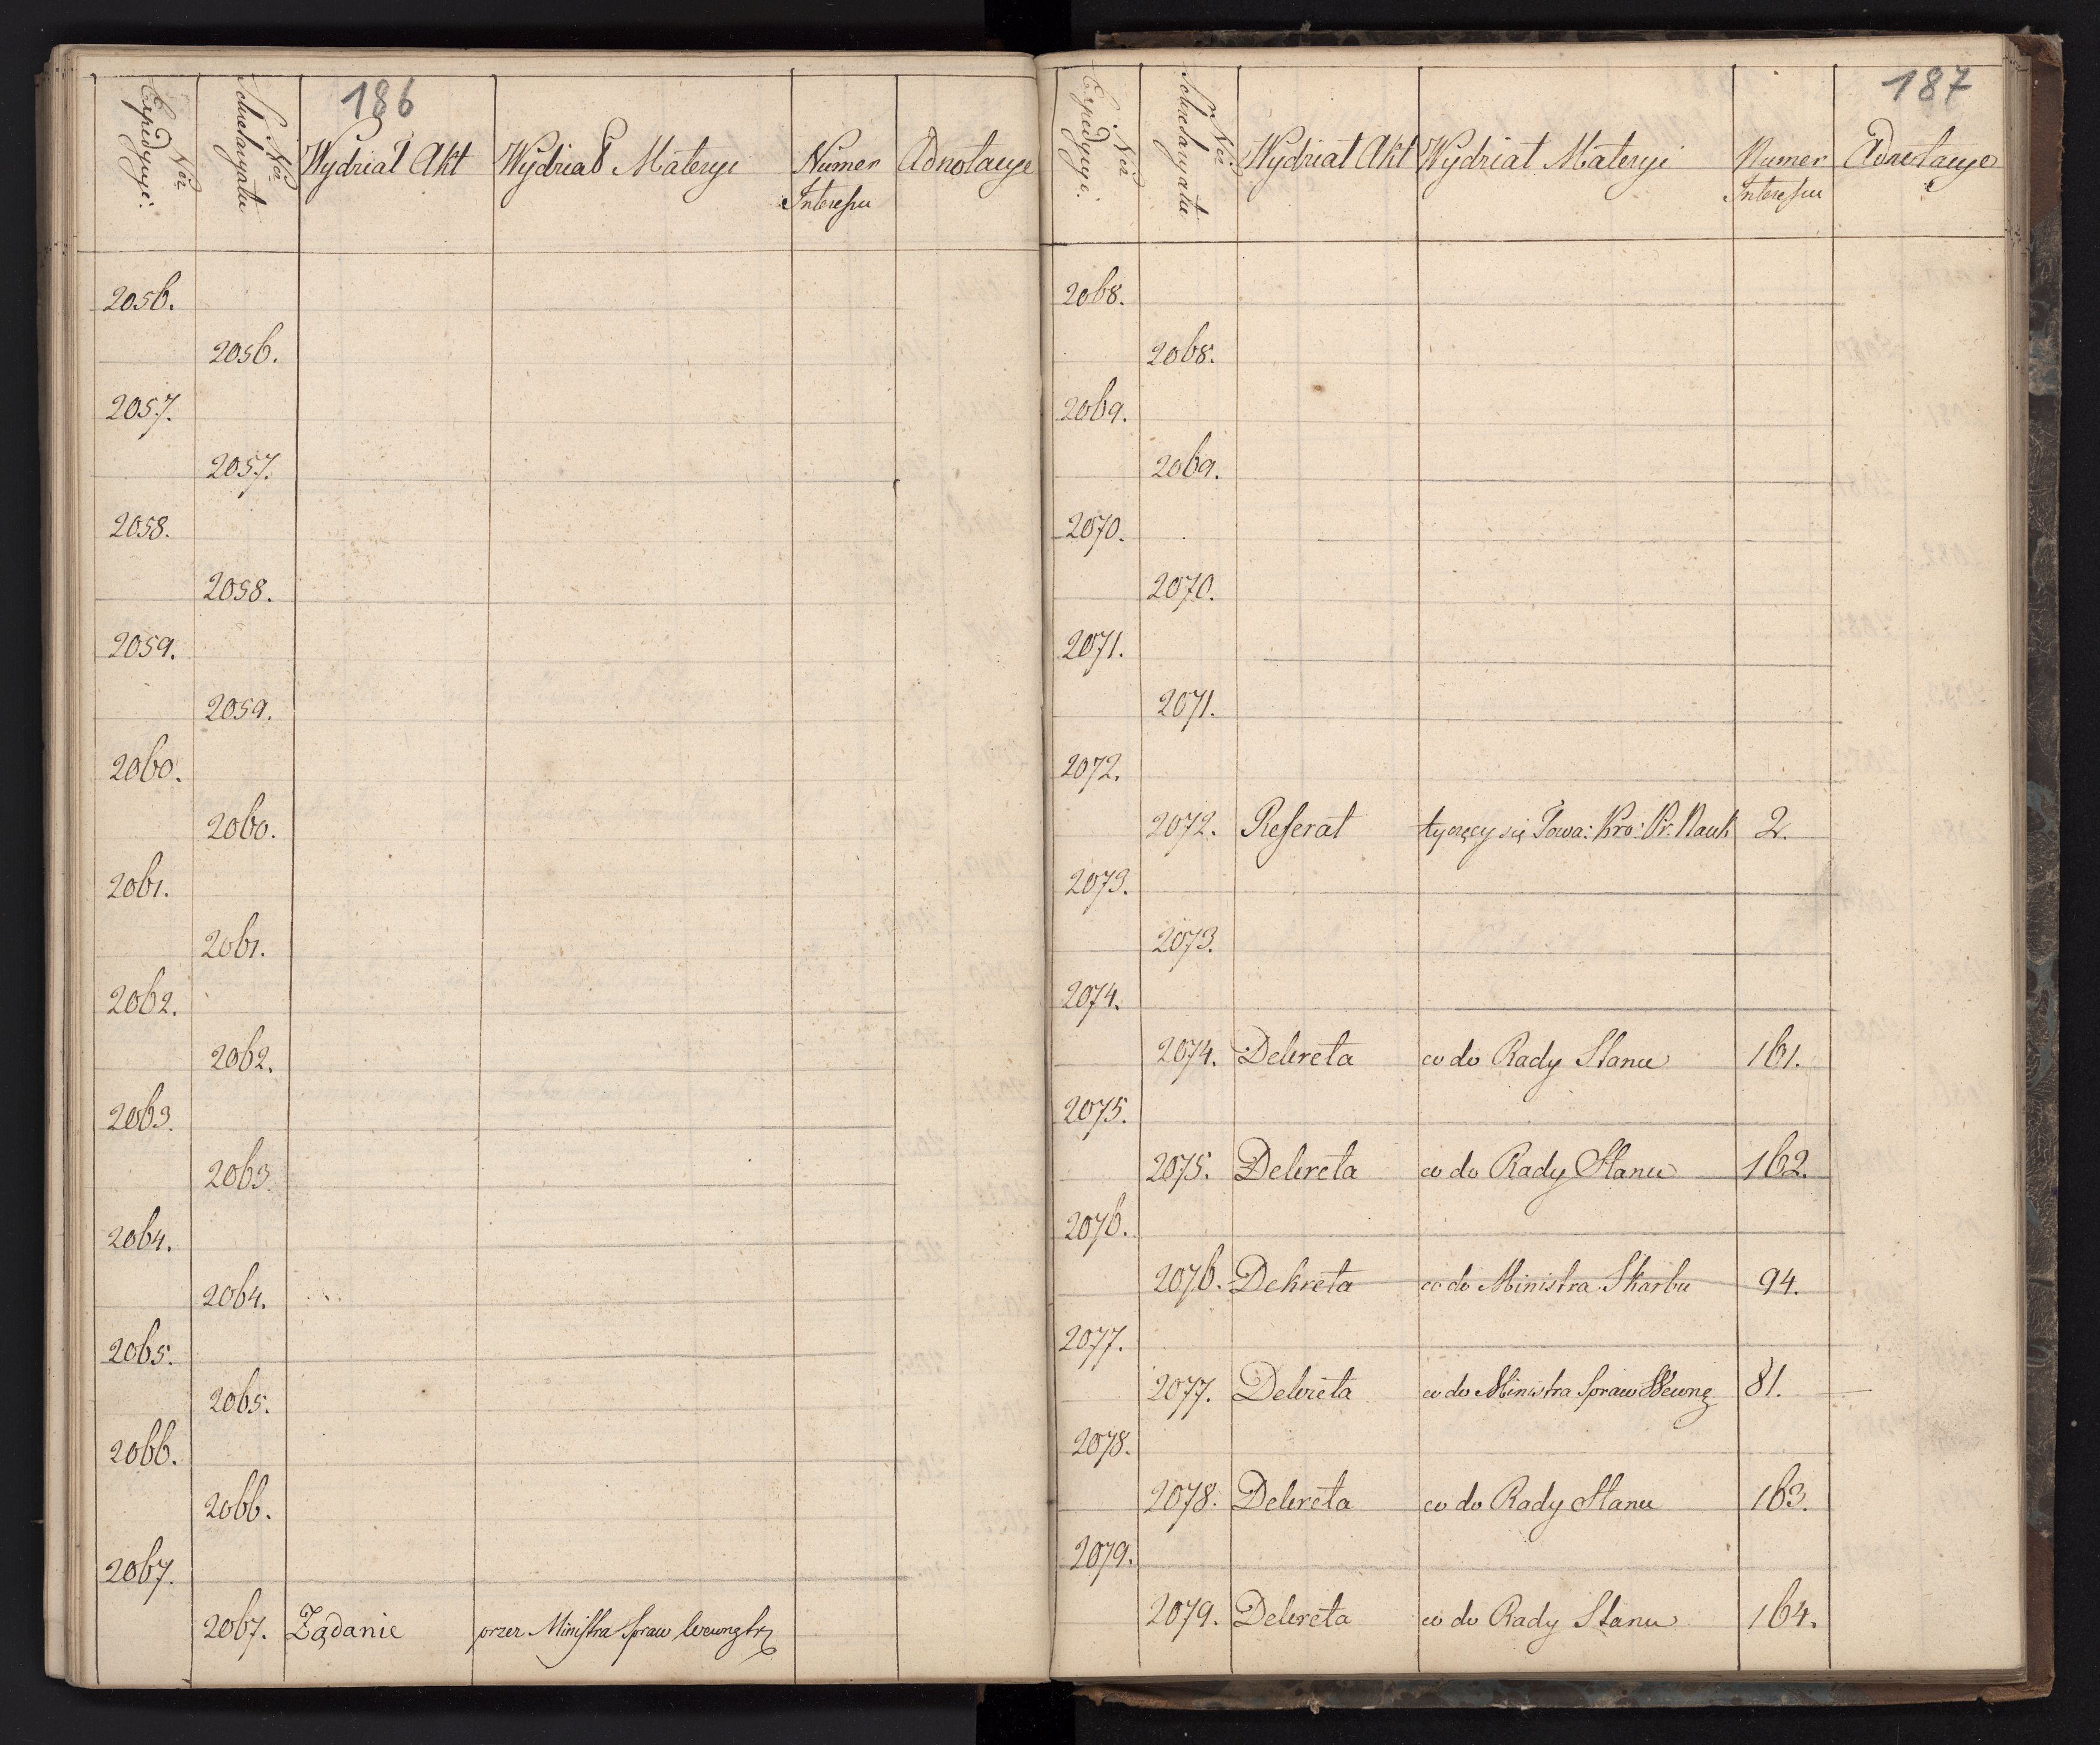 186
Nór Expedycyi: Nór Sekretaryatu Wydział Akt Wydział Materyi Numer Interessu Adnotacye
2056.
2056.
2057.
2057.
2058.
2058.
2059.
2059.
2060.
2060.
2061.
2061.
2062.
2062.
2063.
2063.
2064.
2064.
2065.
2065.
2066.
2066.
2067.
2067. Żądanie przez Ministra Spraw Wewnętrz
187
Nór Expedycyi: Nór Sekretaryatu Wydział Akt Wydział Materyi Numer Interessu Adnotacye
2068.
2068.
2069.
2069.
2070.
2070.
2071.
2071.
2072.
2072. Referat tyczący się Towa: Kró: Pr: Nauk 2.
2073.
2073.
2074.
2074. Dekreta co do Rady Stanu 161.
2075.
2075. Dekreta co do Rady Stanu 162.
2076.
2076. Dekreta co do Ministra Skarbu 94.
2077.
2077. Dekreta co do Ministra Spraw Wewnę 81.
2078.
2078. Dekreta co do Rady Stanu 163.
2079.
2079. Dekreta co do Rady Stanu 164.